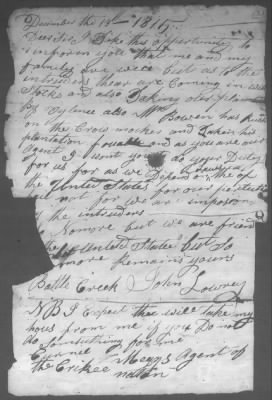 December the 19th 1816
Dear Sir I Take this oppertunity to
inform you that me and my
familey are well but as to the
intruders thear are Coming in
folks and also Taking our plan
By vylance also Bowen has
on the Crow and taken his
plantation and as you are our
Agent I wont you do your Duty
for us for as we Depend on the of
the United States for our protecti
not for we are imposon
the intruders
Nomore but we are frend
the United States but So
more Remains yours
Battle Creek John Lowrey
NB I Expect tha will take my
hous from me if you Do not
do Something for me
Cornnel Meggs Agent of
the Crikee nation